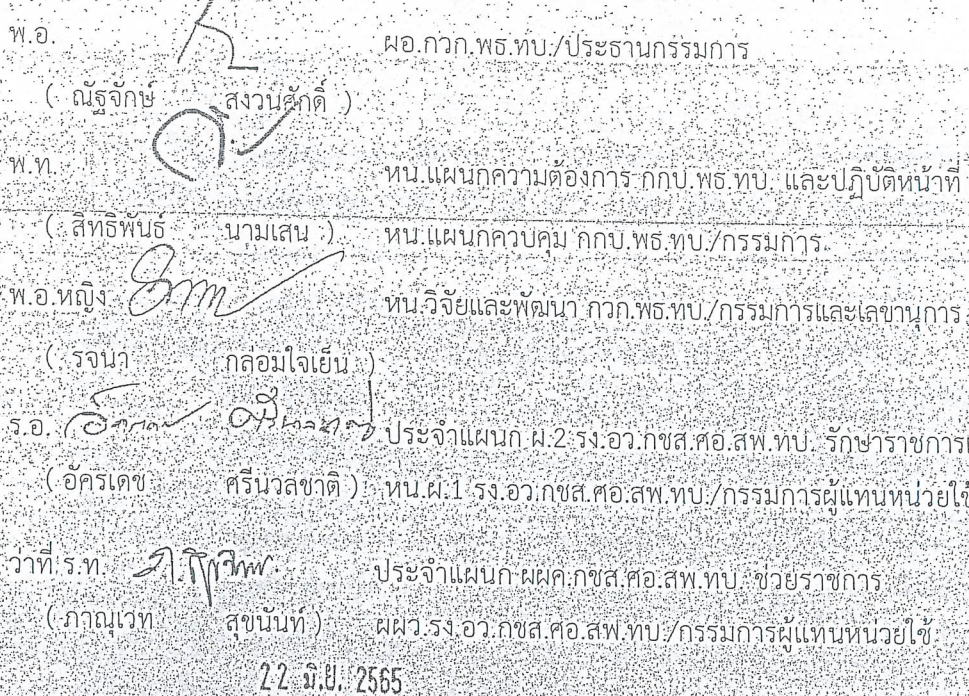 พ.อ. ผอ.กวก.พธ.ทบ./ประธานกรรมการ
( ณัฐจักษ์ สงวนศักดิ์ )
พ.ท. หน.แผนกความต้องการ กกบ.พธ.ทบ. และปฏิบัติหน้าที่
( สิทธิพันธ์ นามเสน ) หน.แผนกควบคุม กกบ.พธ.ทบ./กรรมการ
พ.อ.หญิง หน.วิจัยและพัฒนา กวก.พธ.ทบ./กรรมการและเลขานุการ
( รจนา กล่อมใจเย็น )
ร.อ. ประจำแผนก ผ.2 รง.อว.กชส.ศอ.สพ.ทบ. รักษาราชการ
( อัครเดช ศรีนวลชาติ ) หน.ผ.1 รง.อว.กชส.ศอ.สพ.ทบ./กรรมการผู้แทนหน่วยใช้
ว่าที่ ร.ท. ประจำแผนก ผผค.กชส.ศอ.สพ.ทบ. ช่วยราชการ
( ภาณุเวท สุขนันท์ ) ผผว.รง.อว.กชส.ศอ.สพ.ทบ./กรรมการผู้แทนหน่วยใช้
22 มิ.ย. 2565